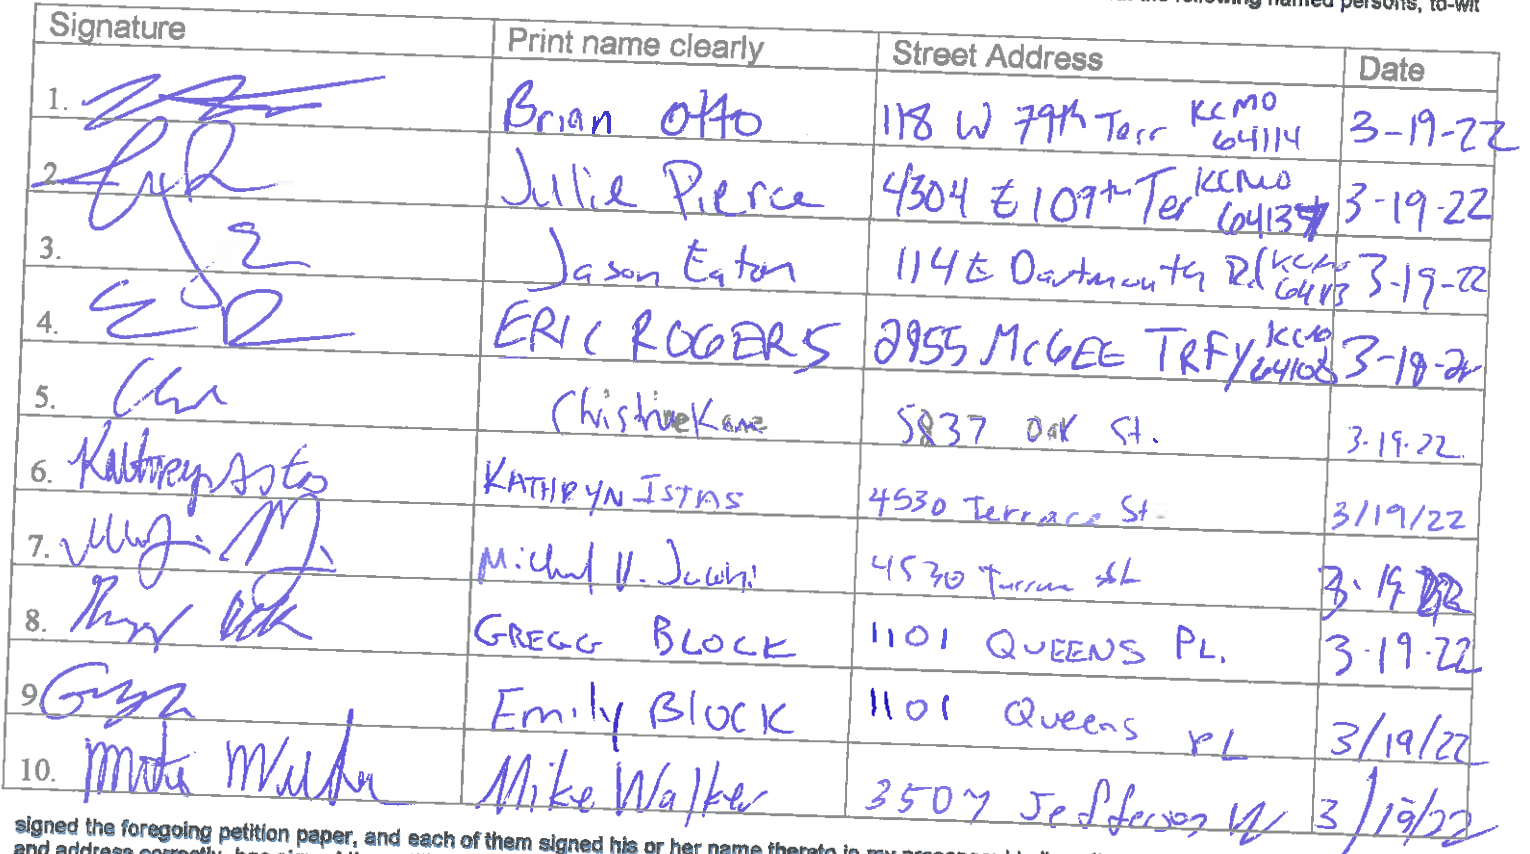 the following named persons, to-wit
Signature Print name clearly Street Address Date
1. Brian Otto 118 W 79th Terr KCMO 64114 3-19-22
2. Jullie Pierce 4304 E 109th Ter KCMO 64137 3-19-22
3. Jason Eaton 114 E Dartmouth Rd KCMO 64113 3-19-22
4. ERIC ROGERS 2955 McGEE TRFY KCMO 64108 3-19-22
5. Christine Kane 5837 Oak St. 3-19-22
6. Kathryn Istas KATHRYN ISTAS 4530 Terrace St 3/19/22
7. Michael V. 4530 Terrace St 3-19 22
8. GREGG BLOCK 1101 QUEENS PL. 3-19-22
9 Emily BLOCK 1101 Queens PL 3/19/22
10. Mike Walker 3507 Jefferson 3/19/22
signed the foregoing petition paper, and each of them signed his or her name thereto in my presence;
and address correctly,